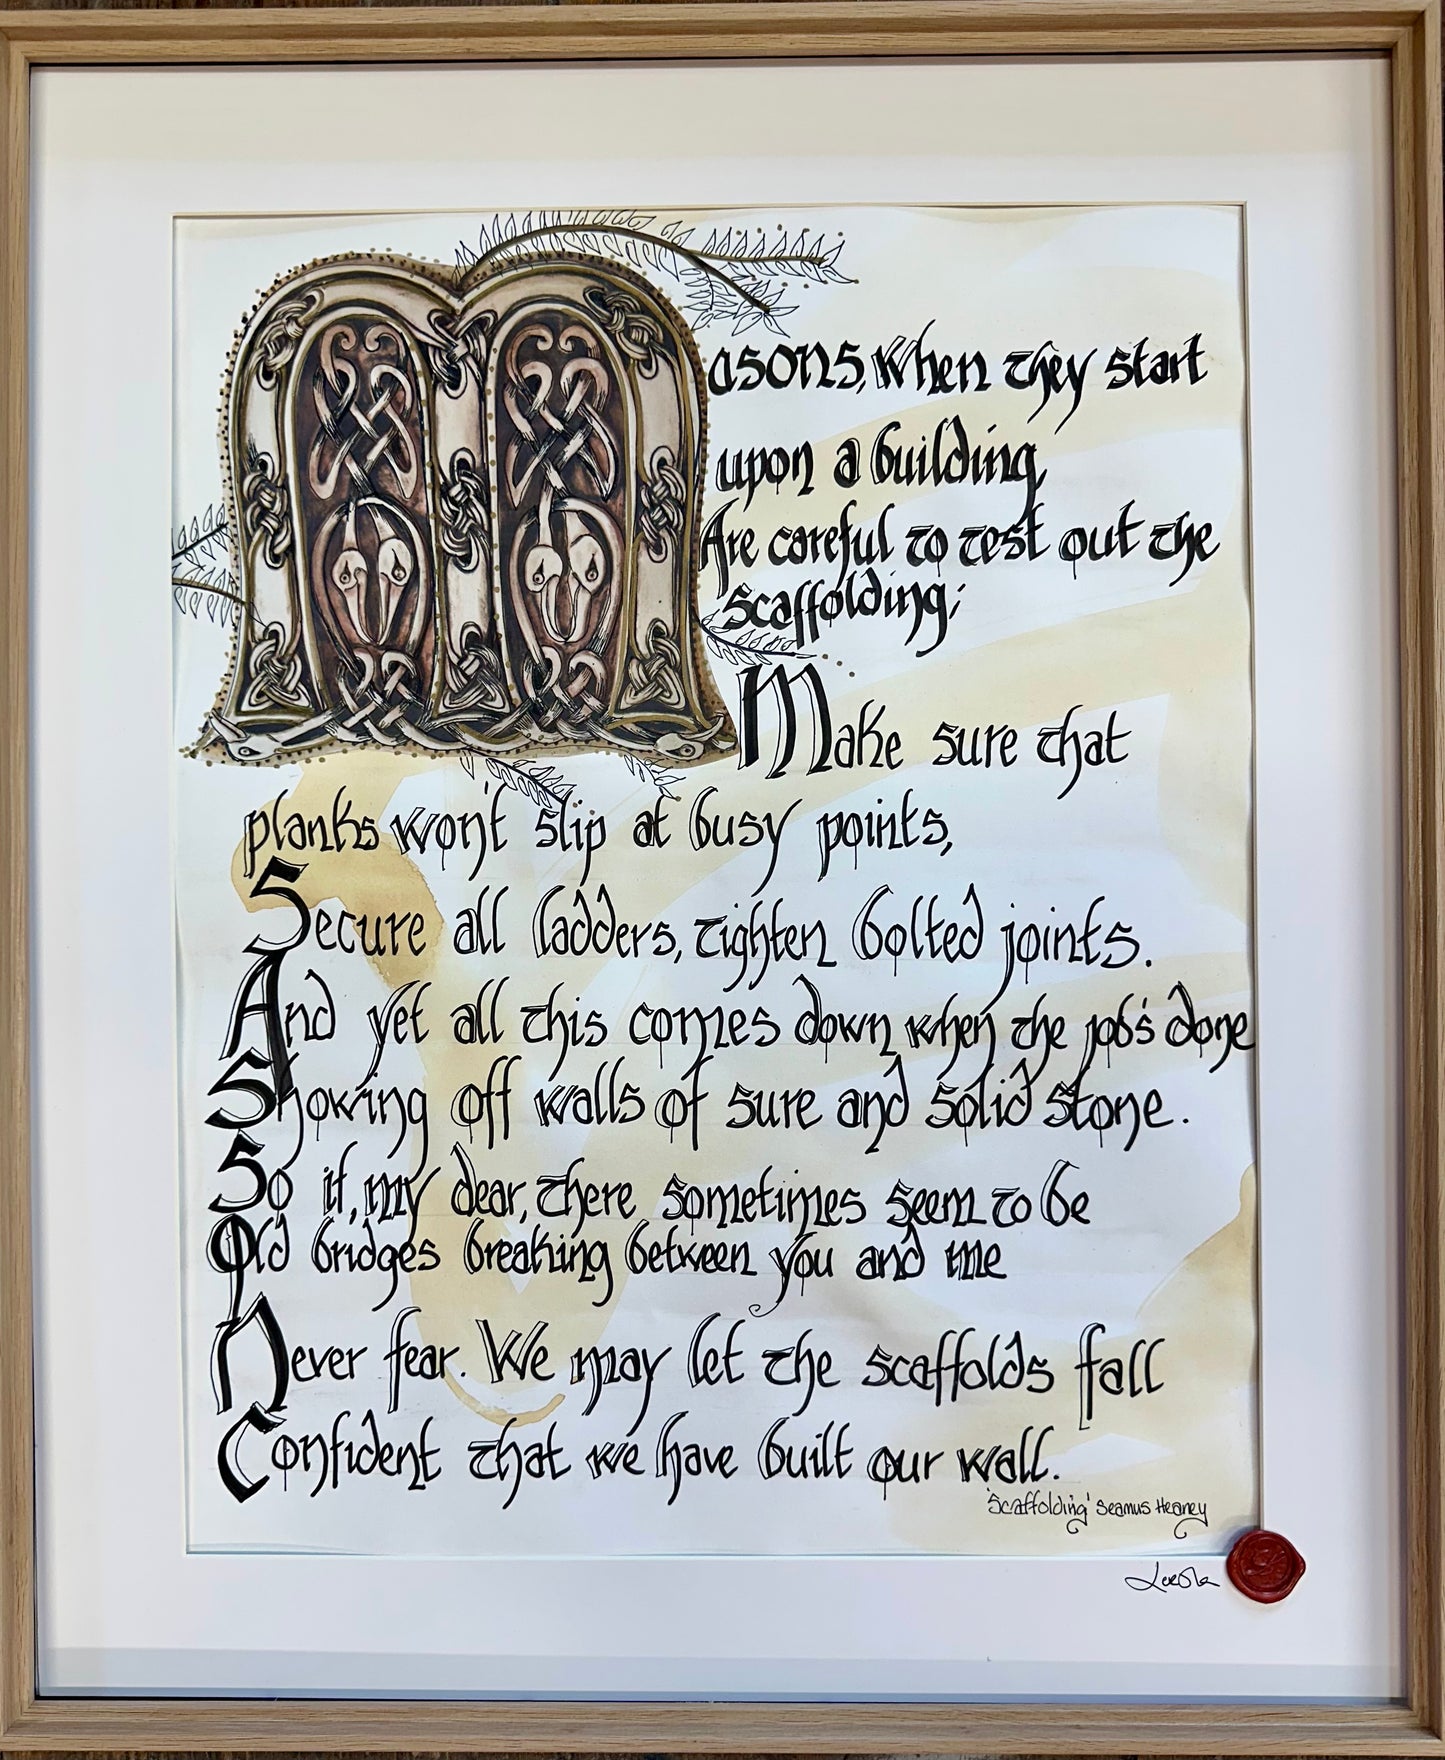 Masons, when they start
upon a building,
Are careful to test out the
scaffolding;
Make sure that
planks won't slip at busy points,
Secure all ladders, tighten bolted joints.
And yet all this comes down when the job's done
Showing off walls of sure and solid stone.
So if, my dear, there sometimes seem to be
Old bridges breaking between you and me
Never fear. We may let the scaffolds fall
Confident that we have built our wall.
'Scaffolding' Seamus Heaney